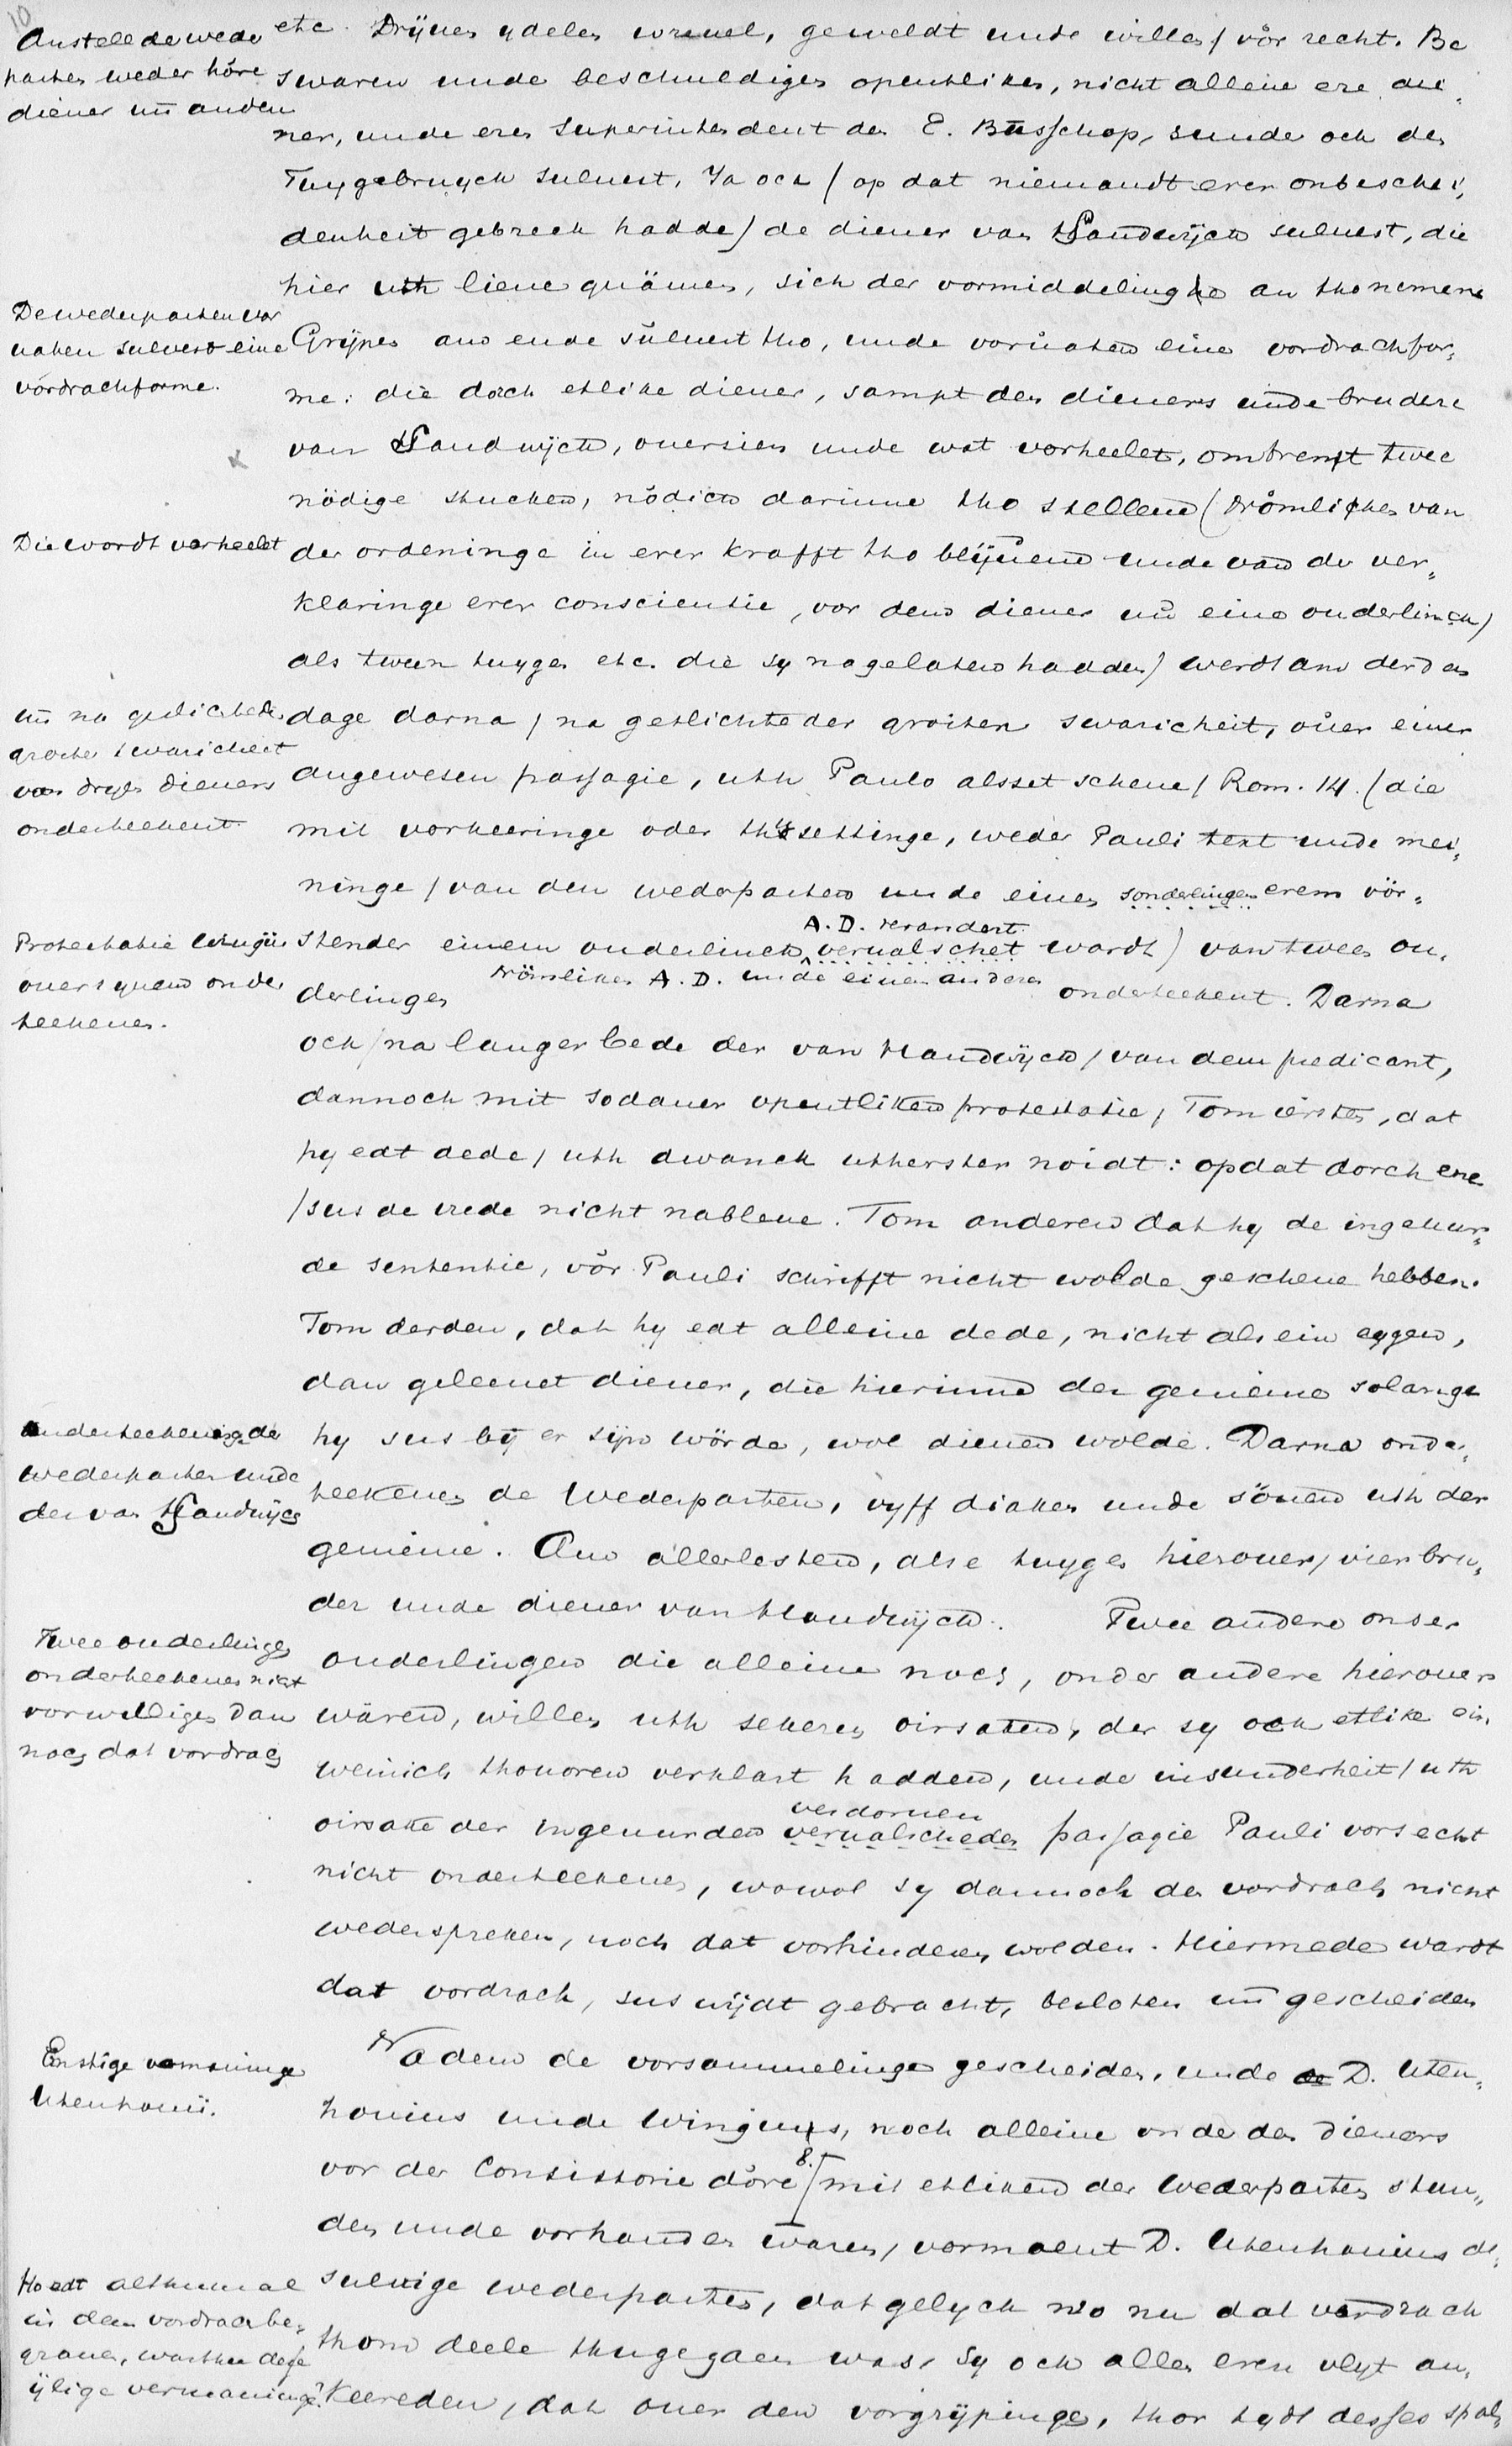 10
Anstell de wede
parthen weder höre
diener un anden
etc. Drijuen ydelen wreuel, geweldt unde willen / vör recht. Be
swaren unde beschuldigen opentliken, nicht alleine ere die„
ner, unde eren Superintendent den E. Busschop, sunde ock den
Tuygebruyck suluest, Ja ock / op dat niemandt erer onbeschei„
denheit gebreck hadde / de diener van Sandwijck suluest, die
hier uth lieue quämen, sich der vormiddelinghe an thonemen
De wederparthen vor
uaten suluest eine
vördrachforme.
Grijpen ano ende suluest tho, unde voruaten eine vordrachfor„
me: die dorch etlike diener, sampt den dieners unde brudere
van Sandwijck, ouersien unde wat verheelet, ombrent twee
nödige stucken, nödich darinne tho stellen (Nömliken van
Die wordt verheelet
der ordeninge in erer krafft tho blijuen unde van de ver„
klaringe erer conscientie, vor den diener un eine ouderlinck)
als tween tuygen etc. die sy nagelaten hadden / werdt am derden
un na geslichteder
groter swaricheit
van dryen dieners
onderteekent.
dage darna / na geslichteder groiten swaricheit, ouer einer
angewesen passagie, uth Paulo alsset schene / Rom. 14. (die
mit vorkeeringe oder thosettinge, weder Pauli text unde mei„
ninge / van den wederparten unde einen sonderlingen erem vör„
A. D. verandert
Protestatie Wingii
ouer syne onder
teekenen.
stender einem ouderlinck vervalschet wardt) van twee ou„
derlingen Nömliken A. D. unde einen anderen onderteekent. Darna
ock / na langer bede der van Handwijck / van dem predicant,
dannoch mit sodaner opentliken protestatie, Tom ersten, dat
hy edt dede / uth dwanck uthersten noidt: opdat dorch ene
/sus de vrede nicht nableue. Tom anderen dat hy de ingeuur„
de sententie, vör Pauli schrifft nicht wolde gekent hebben.
Tom derden, dat hy edt alleine dede, nicht als ein eygen,
dan geleenet diener, die hierinne der gemeine solange
Onderteekeninge de
wederparten unde
der van Sandwijck
hy sus by er sijn wörde, wol dienen wolde. Darna onder„
teekenen de Wederparten, vyff diaken unde sönen uth der
gemeine. Ano allerlesten, alse tuygen hierouer, vier bru„
der unde diener van Handwijck. Twee andere onser
Twee ouderlingen
onderteekenen nicht
vorwilligen dan
noch dat vordrach
ouderlingen die alleine noch, onder andere hierouer
wären, willen uth sekeren oirsaken, der sy ock etlike ein„
weinich thouoren verklart hadden, unde insunderheit / uth
verdornen
oirsake der ingeuurden vervalscheden passagie Pauli vorsecht
nicht onderteekenen, wowol sy dannoch den vordrach nicht
wederspreken, noch dat vorhinderen wolden. Hiermede wardt
dat vordrach, sus wijdt gebracht, besloten un gescheiden
Ernstige vermaninge
Utenhouii.
Nadem de vorsammelinge gescheiden, unde D. Uten„
houius unde Wingius, noch alleine onder den dieners
8.
vor der Consistorie döre / mit etliken der Wederparten stun„
den unde vorhanden waren, vormaent D. Utenhouius de
Ho edt althumal
in den vordrach be„
grauen, warthu dese
ijlige vermaninge?
suluige wederparten, dat gelyck wo nu dat verdrach
thom deele thugegaen was, sy ock allen eren vlyt an„
keereden, dat ouer den vorgrijpinge, thor tydt desses spals